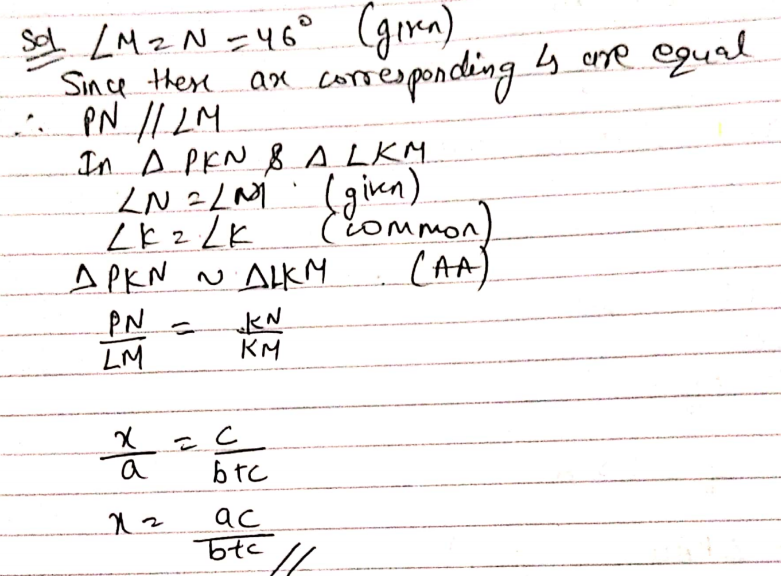 Sol ∠M = N = 46° (given)
Since these are corresponding ∠s are equal
∴ PN // LM
In Δ PKN & Δ LKM
∠N = ∠M (given)
∠K = ∠K (common)
Δ PKN ~ ΔLKM (AA)
PN/LM = KN/KM
x/a = c/b+c
x = ac/b+c //